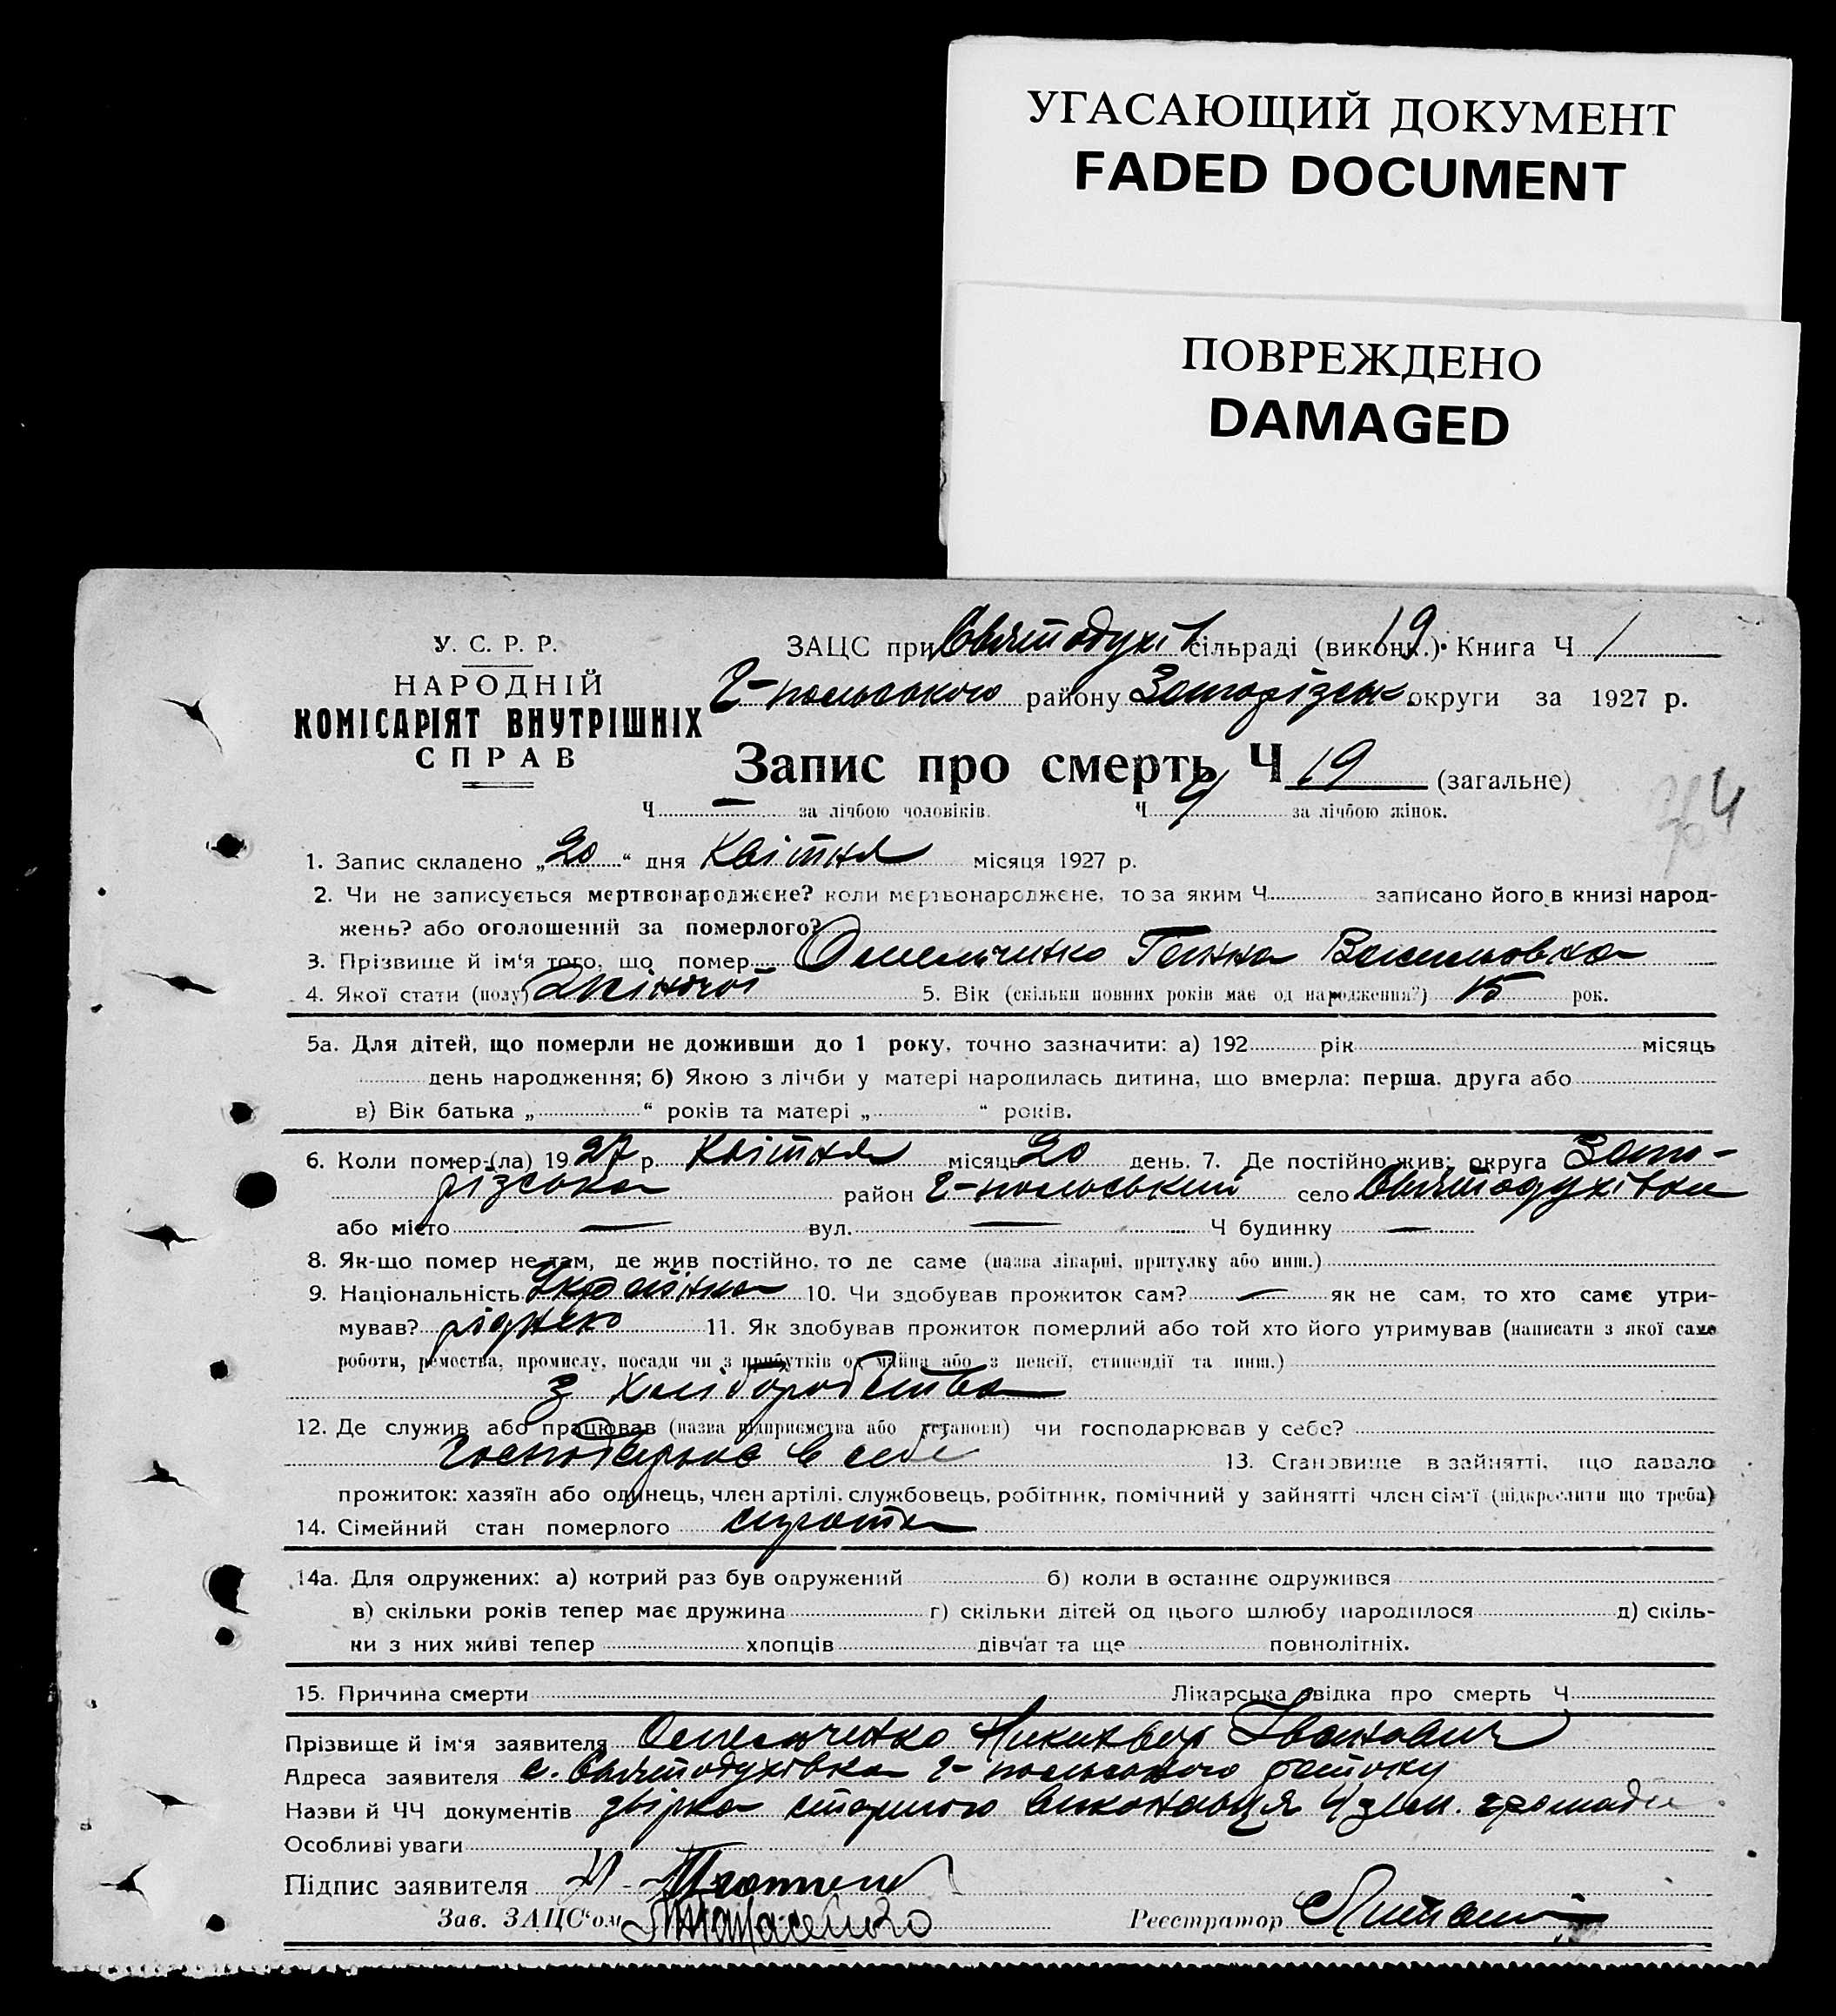 УГАСАЮЩИЙ ДОКУМЕНТ
FADED DOCUMENT
ПОВРЕЖДЕНО
DAMAGED
У. С. Р. Р.
НАРОДНІЙ
КОМІСАРІЯТ ВНУТРІШНІХ
СПРАВ
ЗАЦС при Святодухів сільраді (виконк.). 19 Книга Ч 1
Г-польського району Запорізськ округи за 1927 р.
Запис про смерть Ч 19 (загальне)
Ч — за лічбою чоловіків. Ч 9 за лічбою жінок.
1. Запис складено „20“ дня Квітня місяця 1927 р.
2. Чи не записується мертвонароджене? коли мертвонароджене, то за яким Ч записано його в книзі народ-
жень? або оголошений за померлого?
3. Прізвище й ім'я того, що помер Омельченко Ганна Васильовна
4. Якої стати (полу) Жіночої 5. Вік (скільки повних років має од народження?) 15 рок.
5а. Для дітей, що померли не доживши до 1 року, точно зазначити: а) 192 рік місяць
день народження; б) Якою з лічби у матері народилась дитина, що вмерла: перша, друга або
в) Вік батька „ “ років та матері „ “ років.
6. Коли помер-(ла) 1927 р. Квітня місяць 20 день. 7. Де постійно жив: округа Запо-
різська район Г-польський село Святодухівка
або місто — вул. — Ч будинку —
8. Як-що помер не там, де жив постійно, то де саме (назва лікарні, притулку або инш.)
9. Національність Українка 10. Чи здобував прожиток сам? — як не сам, то хто саме утри-
мував? дядько 11. Як здобував прожиток померлий або той хто його утримував (написати з якої саме
роботи, ремества, промислу, посади чи з прибутків од майна або з пенсії, стипендії та инш.)
з хліборобства
12. Де служив або працював (назва підприємства або установи) чи господарював у себе?
господарював в себе 13. Становище в зайнятті, що давало
прожиток: хазяїн або одинець, член артілі, службовець, робітник, помічний у зайнятті член сім'ї (підкреслити що треба)
14. Сімейний стан померлого сирота
14а. Для одружених: а) котрий раз був одружений б) коли в останнє одружився
в) скільки років тепер має дружина г) скільки дітей од цього шлюбу народилося д) скіль-
ки з них живі тепер хлопців дівчат та ще повнолітніх.
15. Причина смерти Лікарська звідка про смерть Ч
Прізвище й ім'я заявителя Омельченко Іванович
Адреса заявителя с. Святодухівка Г-польського
Назви й ЧЧ документів старшого виконавця 4 зем. громади
Особливі уваги
Підпис заявителя
Зав. ЗАЦС'ом
Реєстратор